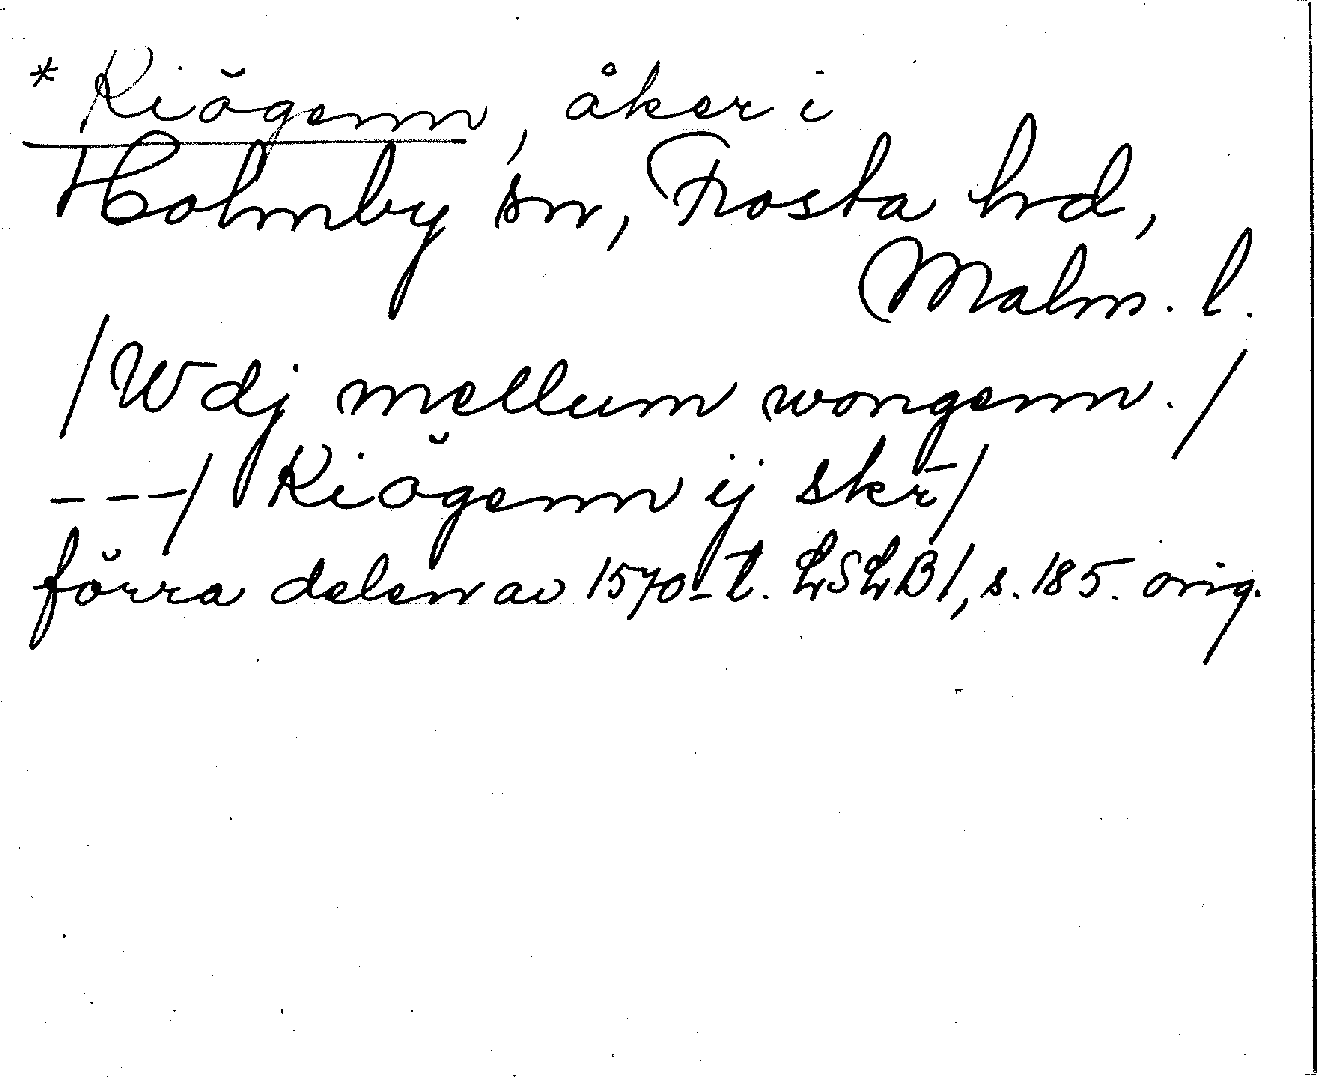 * Kiögenn, åker i
Holmby sn, Frosta hd,
Malm. l.
/Wdj mellum wongenn./
---/ Kiögenn ij skr̄/
förra delen av 1570-t. LSLB1, s. 185. orig.